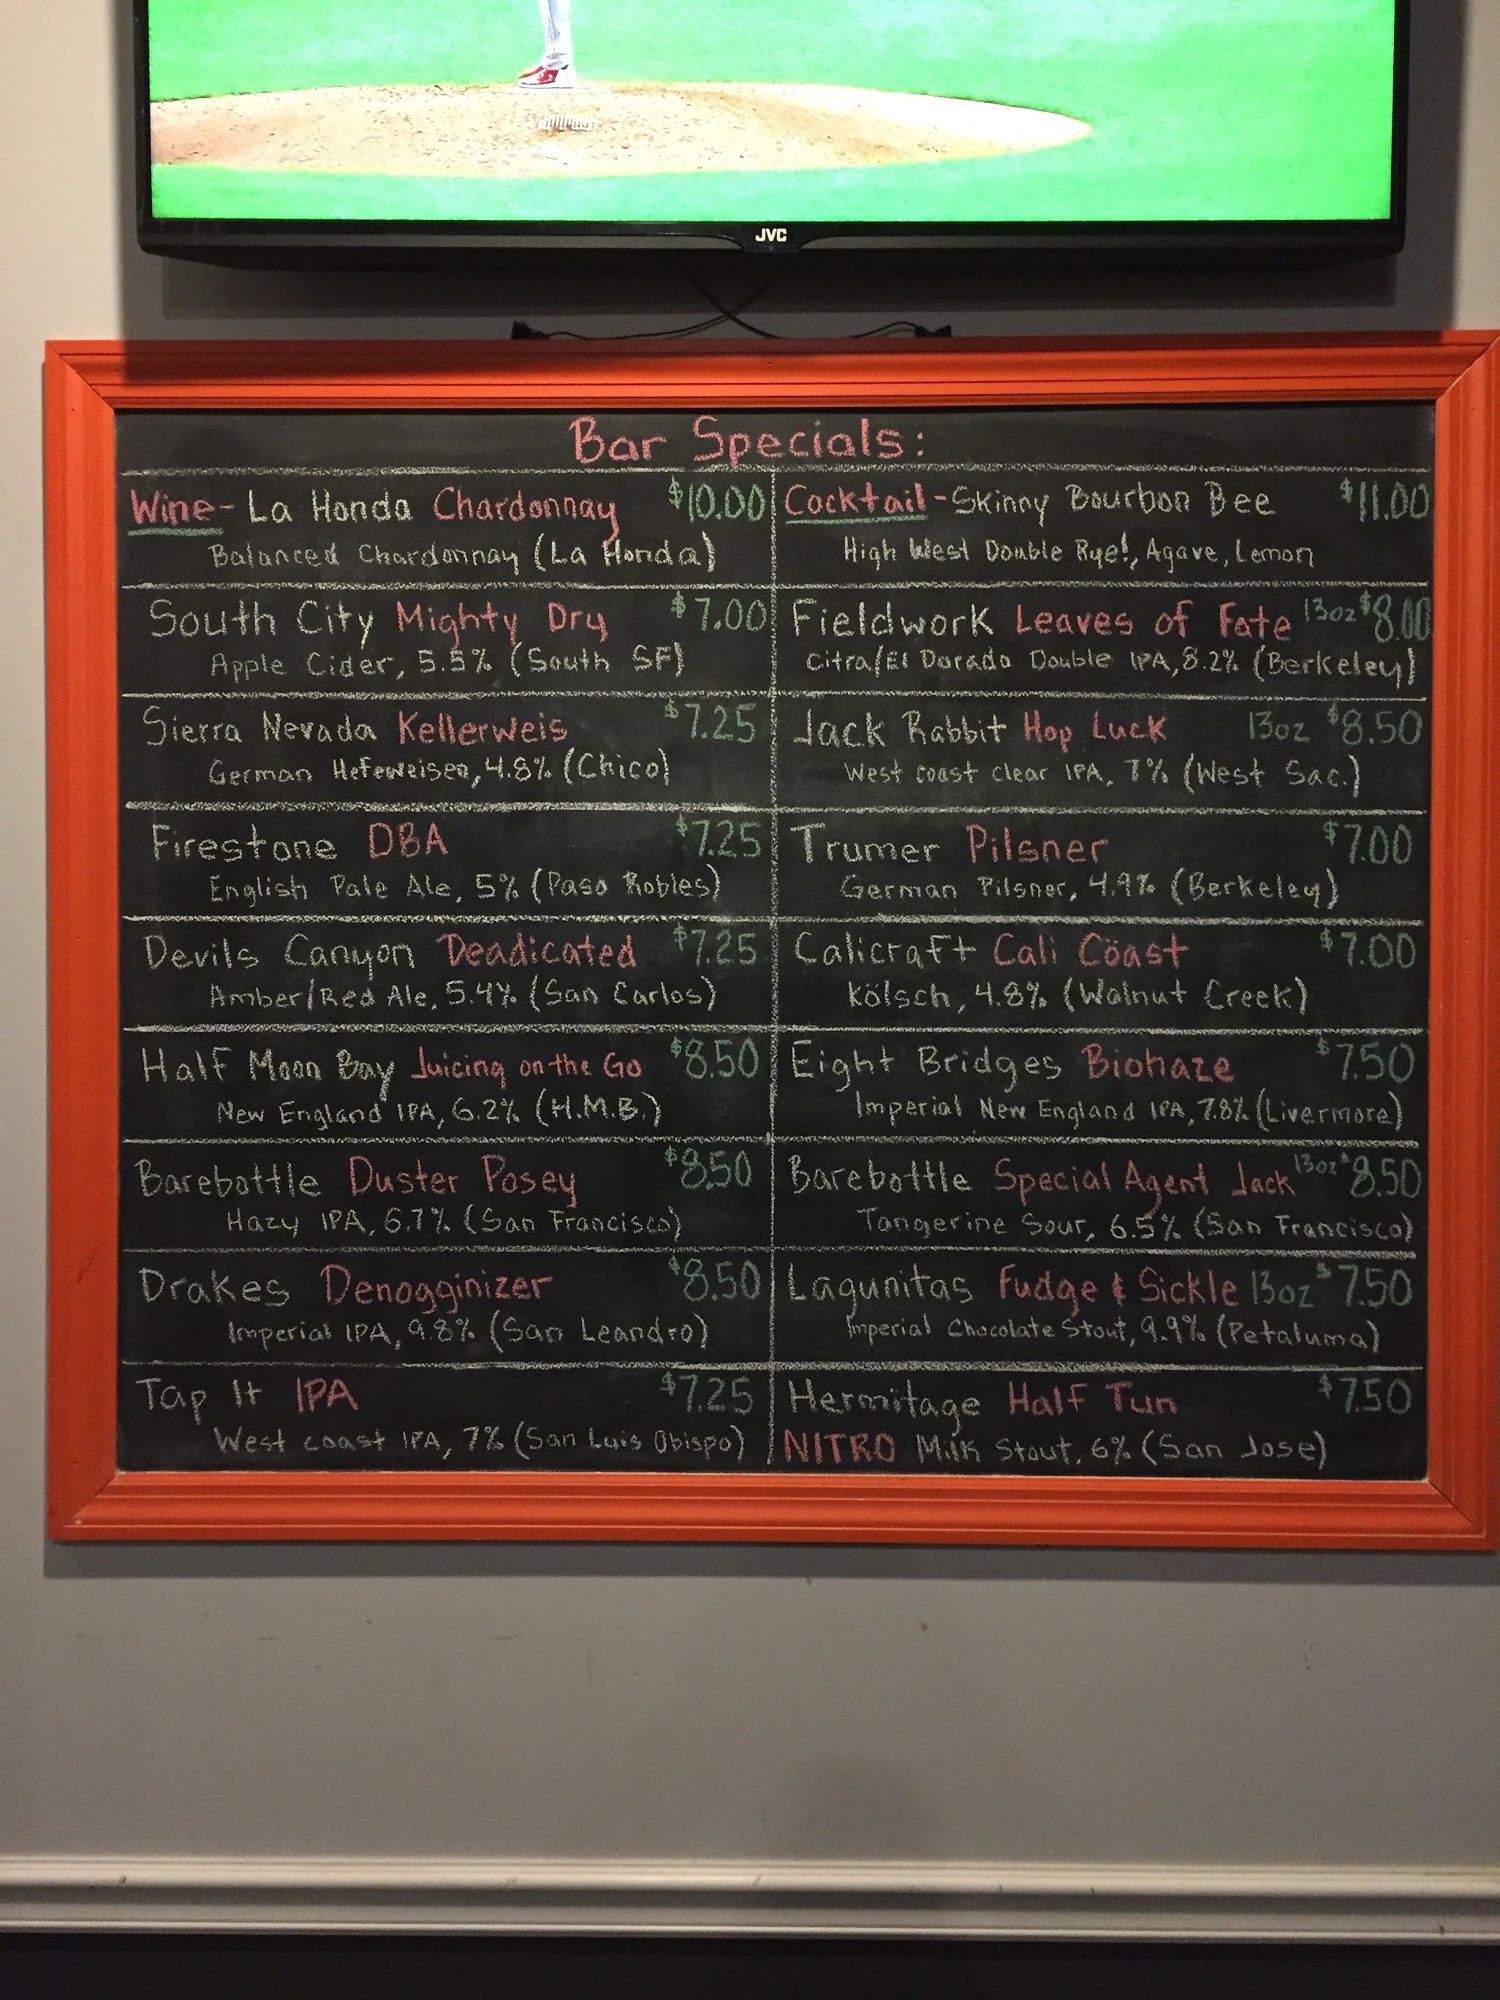 JVC
Bar Specials:
Wine- La Honda Chardonnay $10.00
Balanced Chardonnay (La Honda)
South City Mighty Dry $7.00
Apple Cider, 5.5% (South SF)
Sierra Nevada Kellerweis $7.25
German Hefeweisen, 4.8% (Chico)
Firestone DBA $7.25
English Pale Ale, 5% (Paso Robles)
Devils Canyon Deadicated $7.25
Amber/Red Ale, 5.4% (San Carlos)
Half Moon Bay Juicing on the Go $8.50
New England IPA, 6.2% (H.M.B.)
Barebottle Duster Posey $8.50
Hazy IPA, 6.7% (San Francisco)
Drakes Denogginizer $8.50
Imperial IPA, 9.8% (San Leandro)
Tap It IPA $7.25
West coast IPA, 7% (San Luis Obispo)
Cocktail - Skinny Bourbon Bee $11.00
High West Double Rye!, Agave, Lemon
Fieldwork Leaves of Fate 13oz $8.00
Citra/El Dorado Double IPA, 8.2% (Berkeley)
Jack Rabbit Hop Luck 13oz $8.50
West coast clear IPA, 7% (West Sac.)
Trumer Pilsner $7.00
German Pilsner, 4.9% (Berkeley)
Calicraft Cali Cöast $7.00
Kölsch, 4.8% (Walnut Creek)
Eight Bridges Biohaze $7.50
Imperial New England IPA, 7.8% (Livermore)
Barebottle Special Agent Jack 13oz $8.50
Tangerine Sour, 6.5% (San Francisco)
Lagunitas Fudge & Sickle 13oz $7.50
Imperial Chocolate Stout, 9.9% (Petaluma)
Hermitage Half Tun $7.50
NITRO Milk Stout, 6% (San Jose)